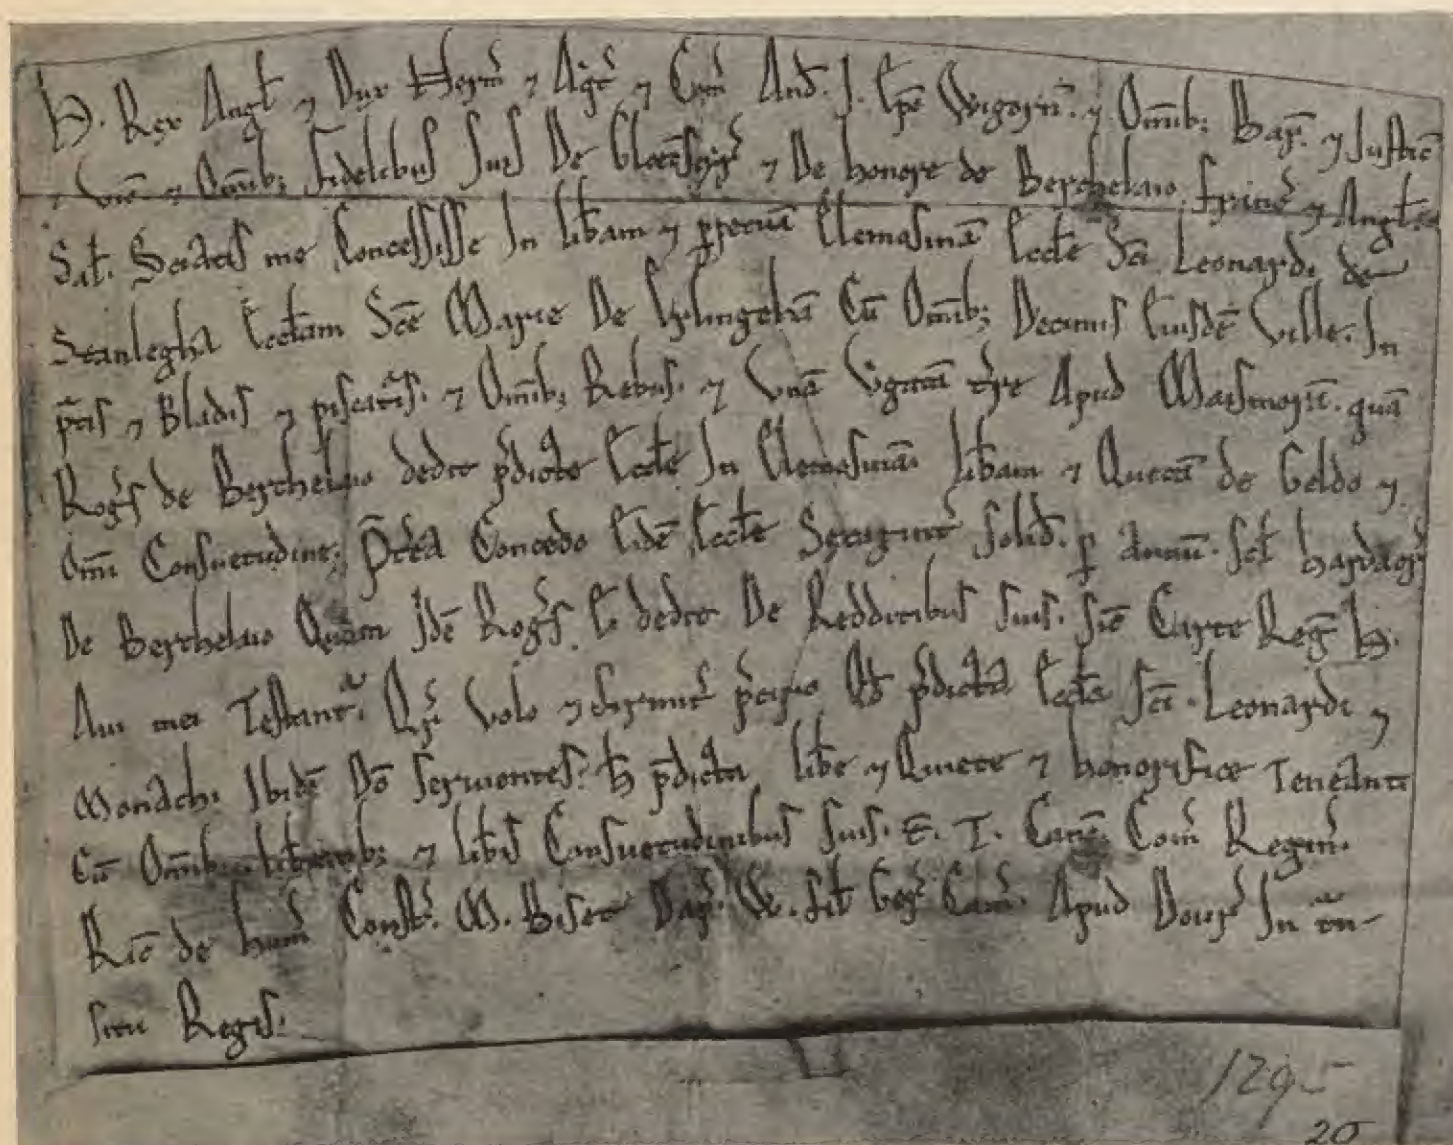 H. Rex Angł ⁊ Dux Norm̄ ⁊ Aq̄t ⁊ Com̄ And̄. J. Ep̄e Wigorn̄. ⁊ Om̄ib; Bar̄. ⁊ Justic̄
⁊ vic̄ ⁊ Om̄ib; fidelibus suis De Gloec̄ ⁊ De honore de Berchelaio. francis ⁊ Anglis
Sał. Sciatis me Concessisse In lib̄am ⁊ ꝑpetuā Elemosinā Eccłe Sc̄i Leonardi de
Stanlegha Eccłam Sc̄e Marie De Erlingehā Cū Om̄ib; Decimis Eiusdē Ville. In
p̄tis ⁊ Bladis ⁊ piscatis. ⁊ Om̄ib; Rebus. ⁊ Vnā v̄gatā t̄re Apud Maismorn̄. quā
Roḡs de Berchelaio dedit p̄dicte Eccłe In Elemosinā. lib̄am ⁊ Quietā de Geldo ⁊
om̄i Consuetudine. P̄t̄ea Concedo Eidē Eccłe Sexagint̄ solid̄. ꝑ Annū. scł hardacr̄
De Berchelaio Quam Idē Roḡs Ei dedit De Redditibus suis. sic̄ Carte Reḡ H.
Aui mei Testant̄. Qr̄ Volo ⁊ firmit̄ p̄cipio Qd̄ p̄dicta Eccła Sc̄i. Leonardi ⁊
Monachi Ibidē Dō seruientes. h̄ p̄dicta libe ⁊ Quiete ⁊ honorifice Teneānt
Cū Om̄ib; libtatib; ⁊ lib̄is Consuetudinibus suis. T. T. Canc̄. Com̄ Regin̄.
Ric̄ de hum̄ Const̄. M. Biset Dap̄. W. fił Ger̄ Cam̄. Apud Dour̄ In t̄n-
situ Regis.
1295
20